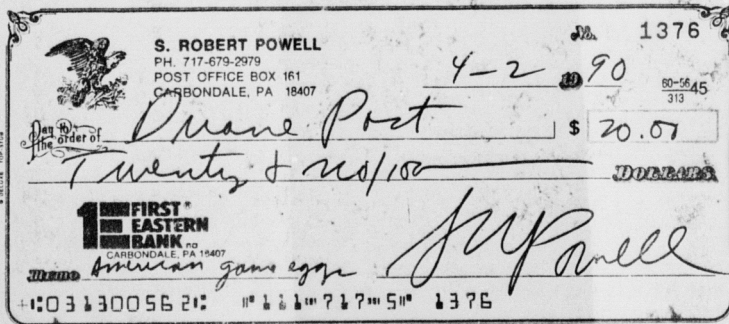 S. ROBERT POWELL
PH. 717-679-2979
POST OFFICE BOX 161
CARBONDALE, PA 18407
No. 1376
4-2 19 90
60-5645
313
Pay to the order of Duane Post $ 20.00
Twenty & no/100 DOLLARS
FIRST EASTERN BANK na
CARBONDALE, PA 18407
Memo American game eggs SRPowell
⑆031300562⑆ ⑈111⑈717⑈5⑈ 1376